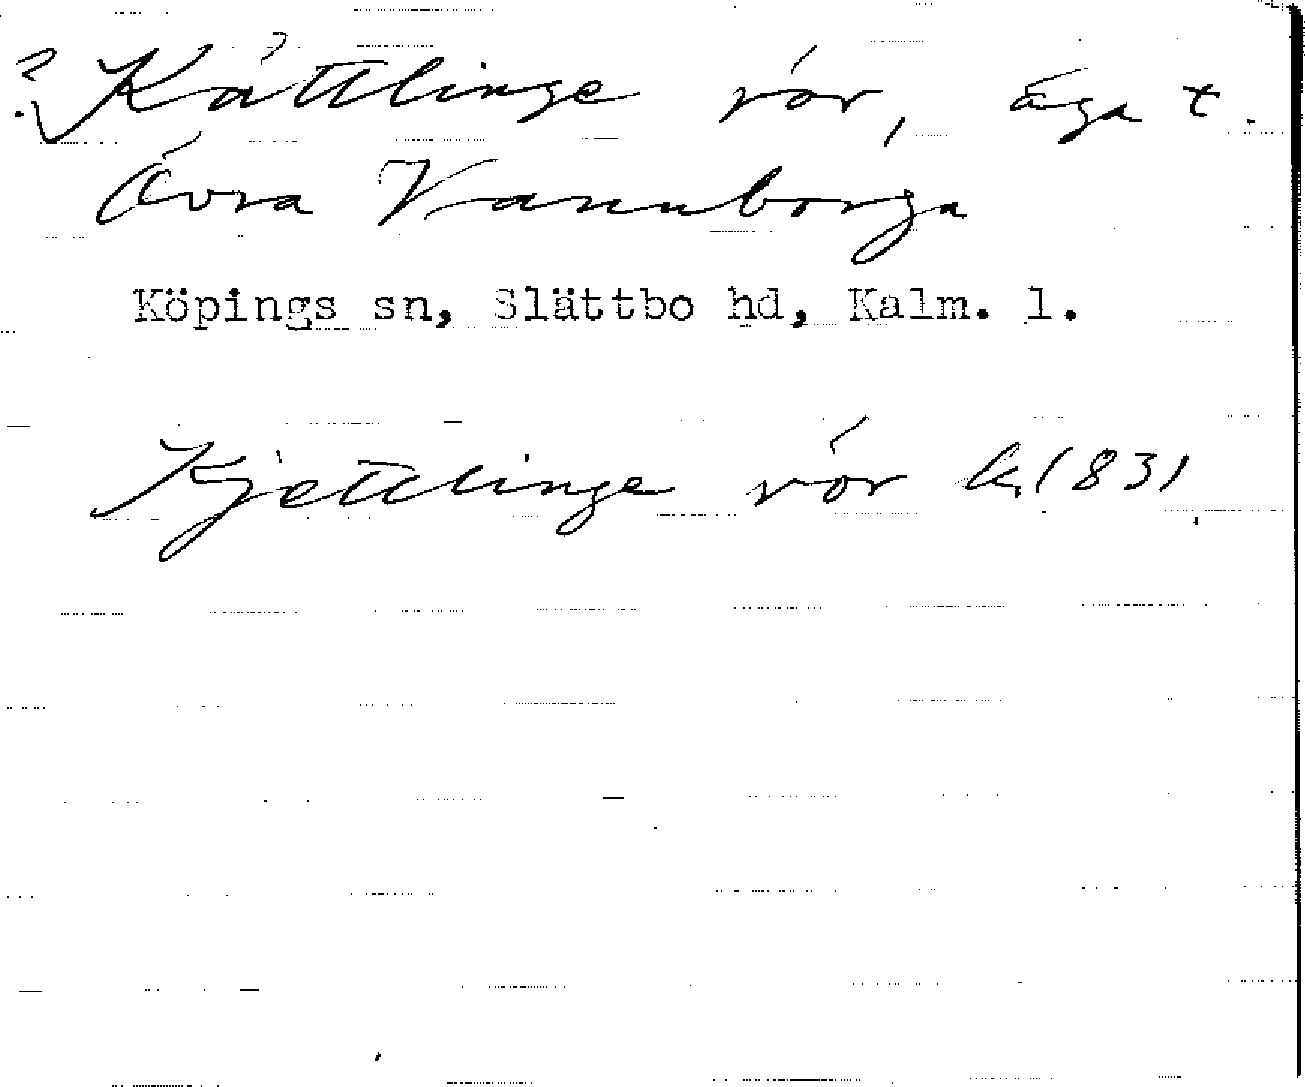 ? Kättlinge rör, äga t.
Övra Vannborga
Köpings sn, Slättbo hd, Kalm. l.
Kjettlinge rör k. 1831